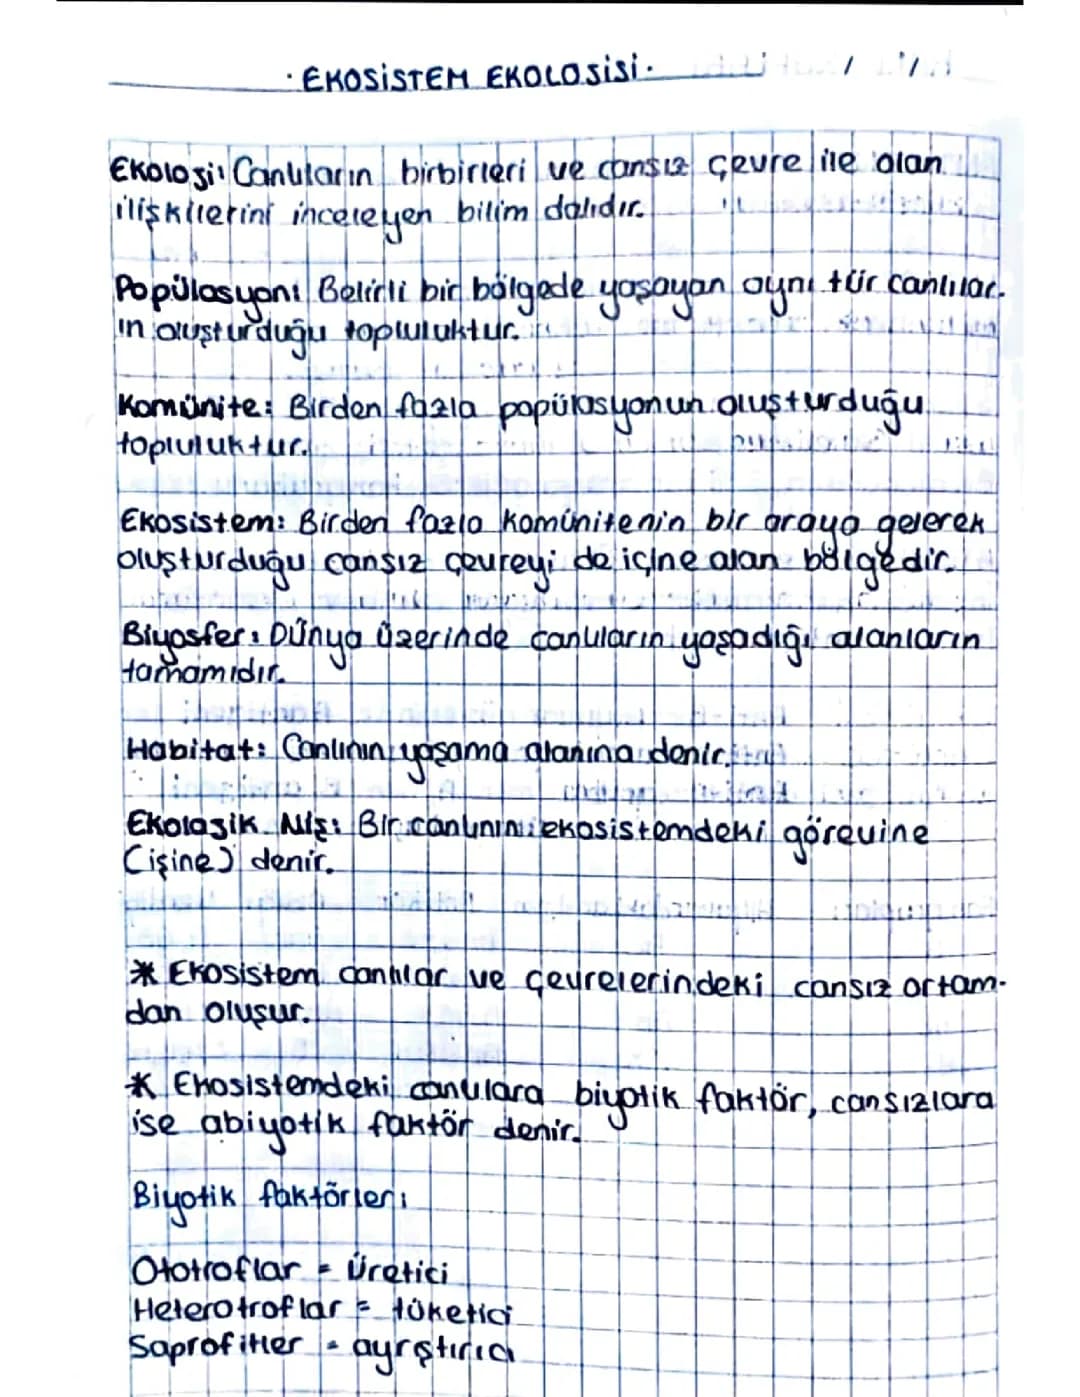 · EKOSİSTEM EKOLOJİSİ ·
Ekoloji: Canlıların birbirleri ve cansız çevre ile olan
ilişkilerini inceleyen bilim dalıdır.
Popülasyon: Belirli bir bölgede yaşayan aynı tür canlılar-
ın oluşturduğu topluluktur.
Komünite: Birden fazla popülasyonun oluşturduğu
topluluktur.
Ekosistem: Birden fazla komünitenin bir araya gelerek
oluşturduğu cansız çevreyi de içine alan bölgedir.
Biyosfer: Dünya üzerinde canlıların yaşadığı alanların
tamamıdır.
Habitat: Canlının yaşama alanına denir.
Ekolojik Niş: Bir canlının ekosistemdeki görevine
(işine) denir.
* Ekosistem canlılar ve çevrelerindeki cansız ortam-
dan oluşur.
* Ekosistemdeki canlılara biyotik faktör, cansızlara
ise abiyotik faktör denir.
Biyotik faktörler:
Ototroflar = Üretici
Heterotroflar = tüketici
Saprofitler = ayrıştırıcı